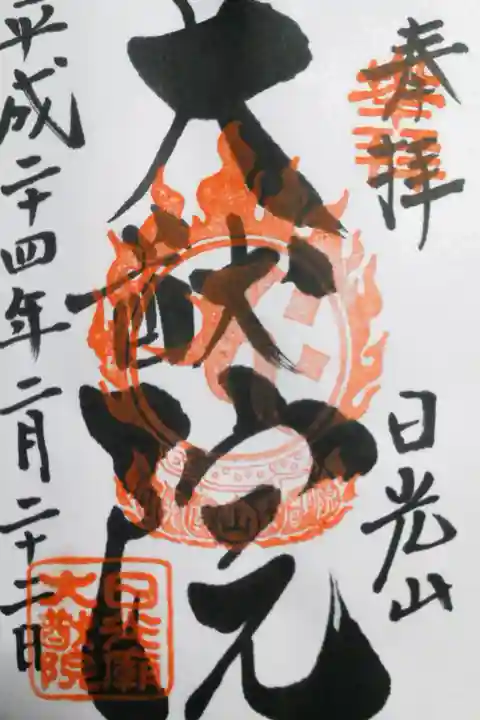 奉拝
日光山
大猷院
平成二十四年二月二十二日
日光廟
大猷院